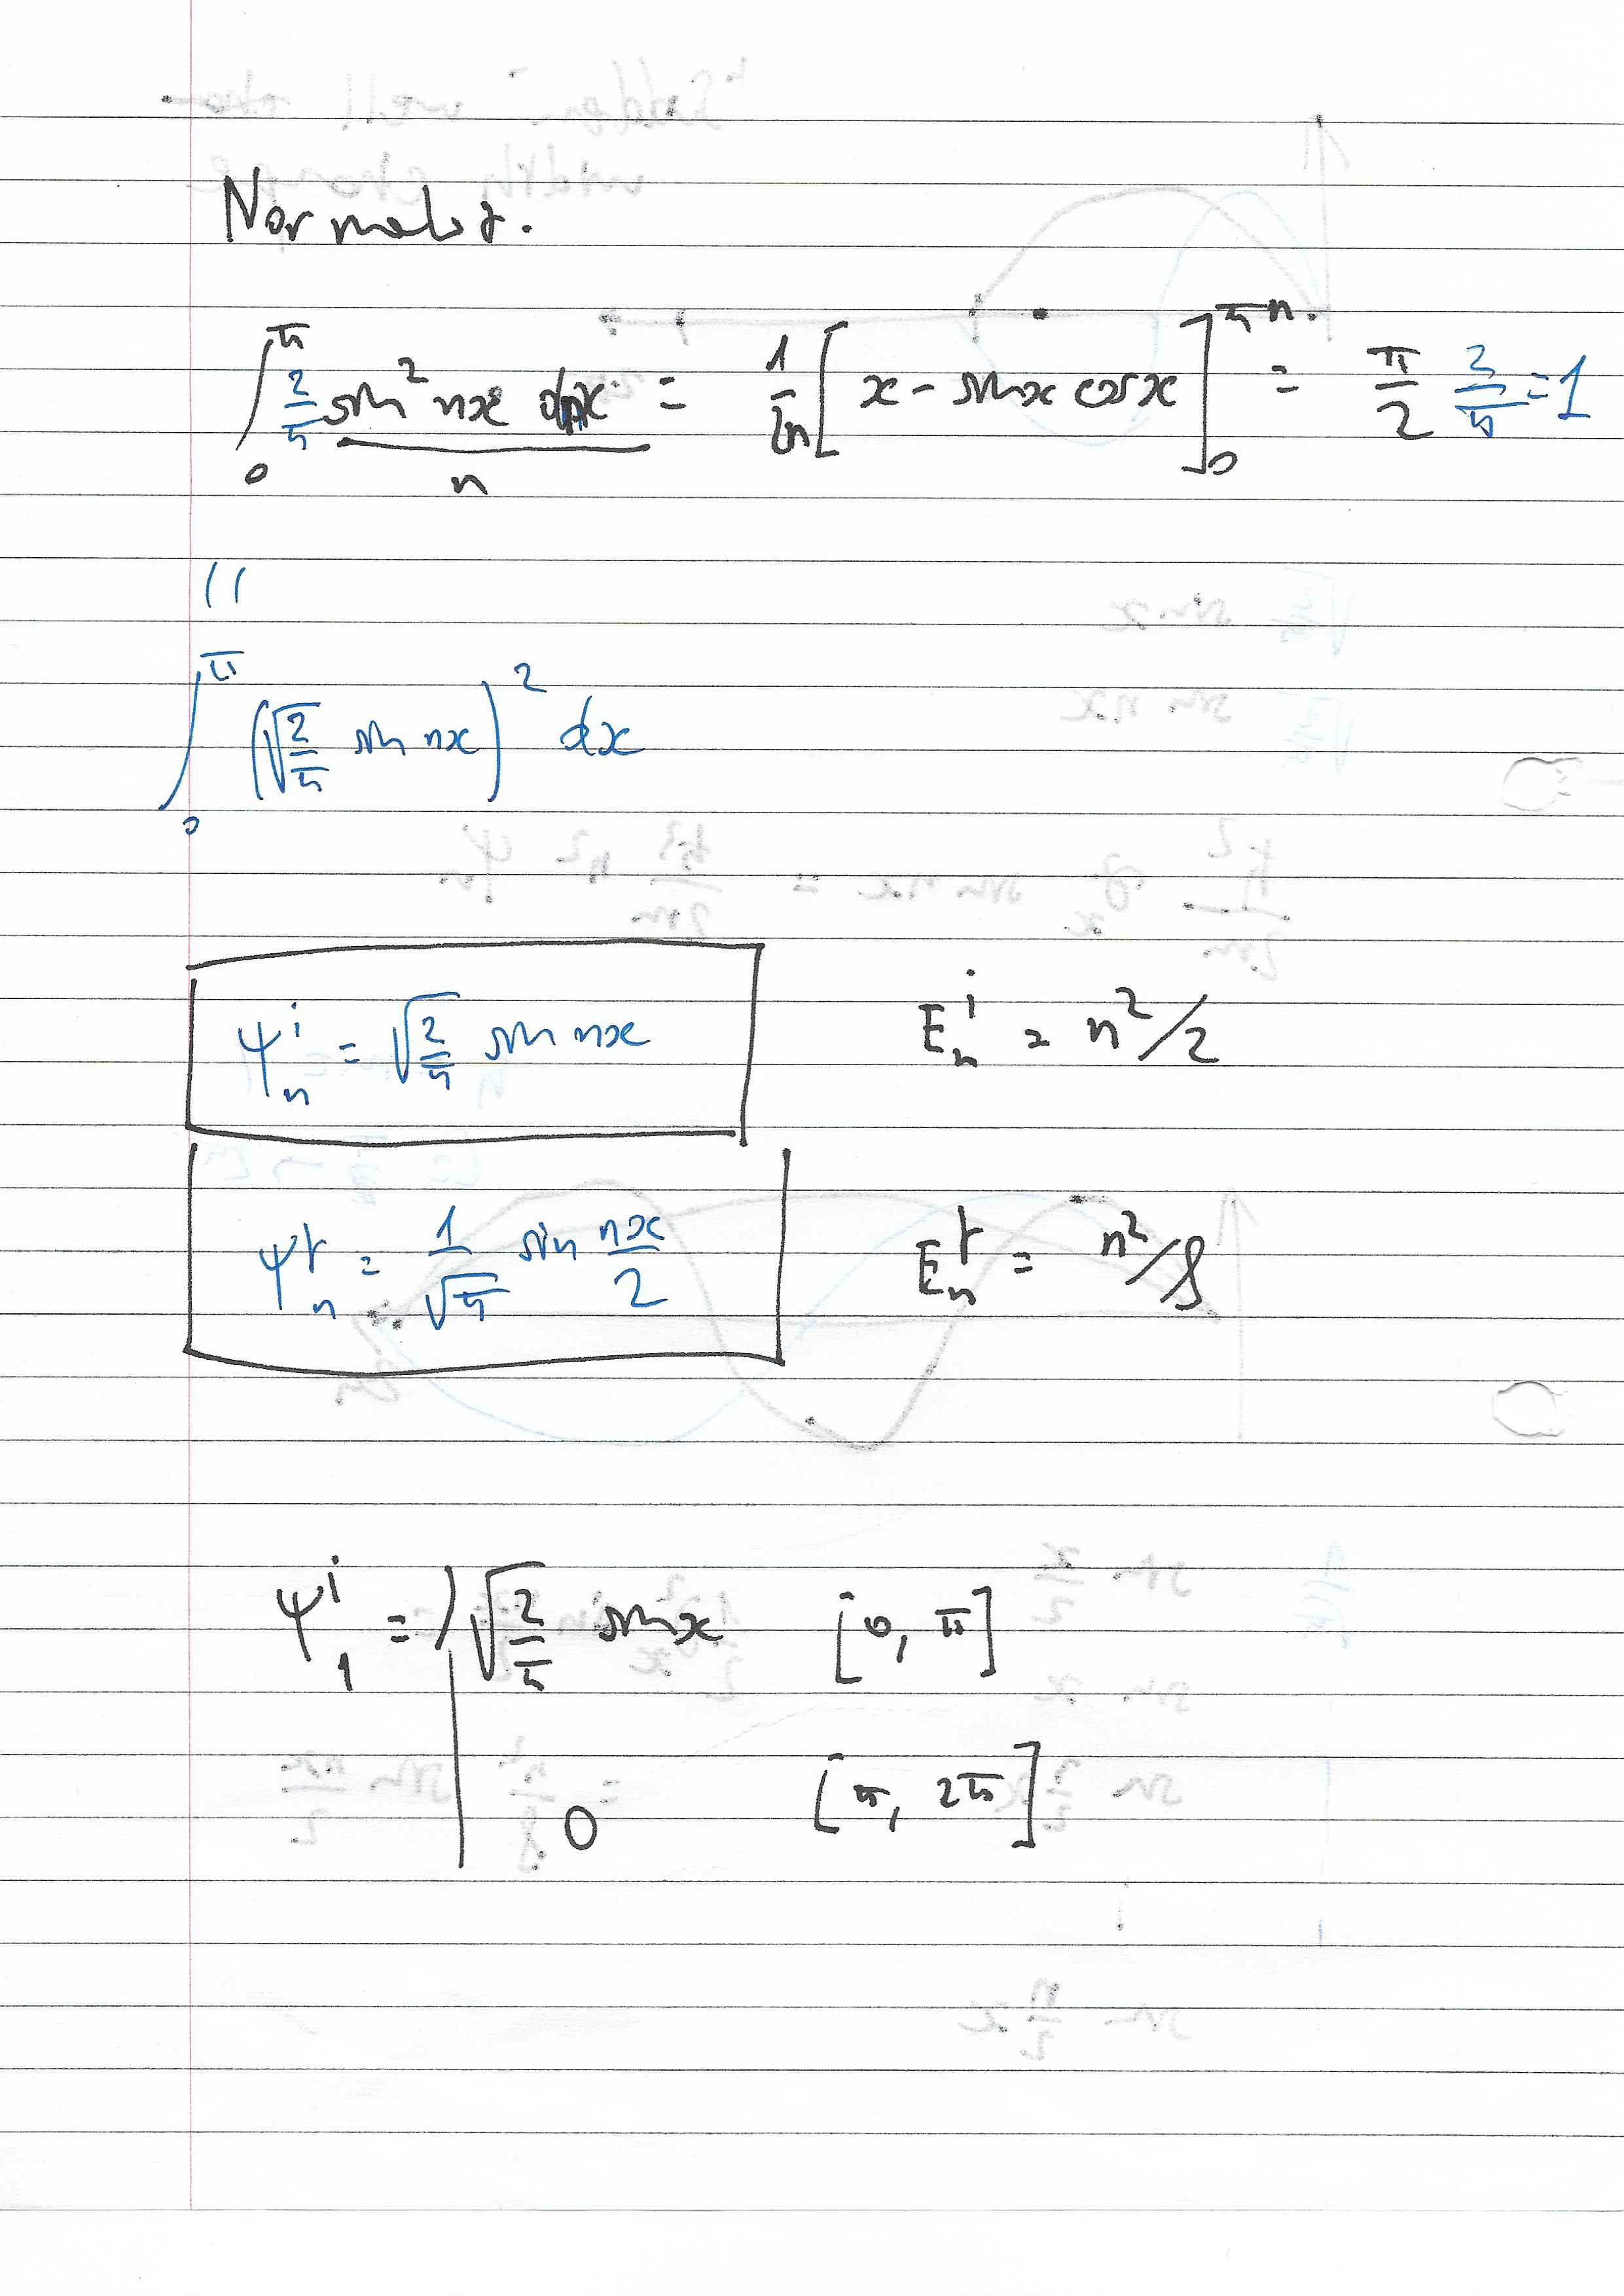 Normalis.
∫₀^π 2/π sin² nx dnx / n = 1/2n [x - sinx cosx]₀^πn. = π/2 2/π = 1
||
∫₀^π (√(2/π) sin nx)² dx
ψₙⁱ = √(2/π) sin nx Eₙⁱ = n²/2
ψₙᶠ = 1/√π sin nx/2 Eₙᶠ = n²/8
ψ₁ⁱ = √(2/π) sinx [0, π]
0 [π, 2π]